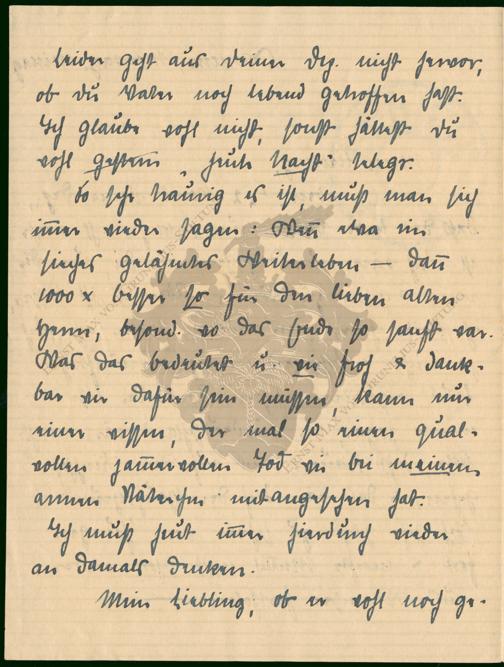 Leider geht aus Deiner Dep. nicht hervor,
ob Du Vater noch lebend getroffen hast.
Ich glaube wohl nicht, sonst hättest Du
wohl gestern, heute Nacht telegr.
So sehr traurig es ist, muß man sich
immer wieder sagen: Wenn etwa ein
sieches gelähmtes Weiterleben — dann
1000 x besser so für den lieben alten
Herrn, besond. wo das Ende so sanft war.
Was das bedeutet u. wie froh & dank-
bar wir dafür sein müssen, kann nur
einer wissen, der mal so einen qual-
vollen jammervollen Tod wie bei meinem
armen Väterchen mitangesehen hat.
Ich muß heut immer hierdurch wieder
an damals denken.
Mein Liebling, ob er wohl noch ge-